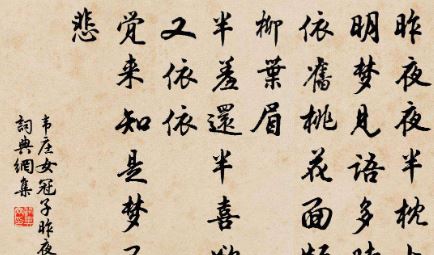 昨夜夜半枕上
明梦见语多時
依舊桃花面頻
柳葉眉
半羞還半喜欲
又依依
觉来知是梦不
悲
韦庄女冠子昨夜
詞典網集